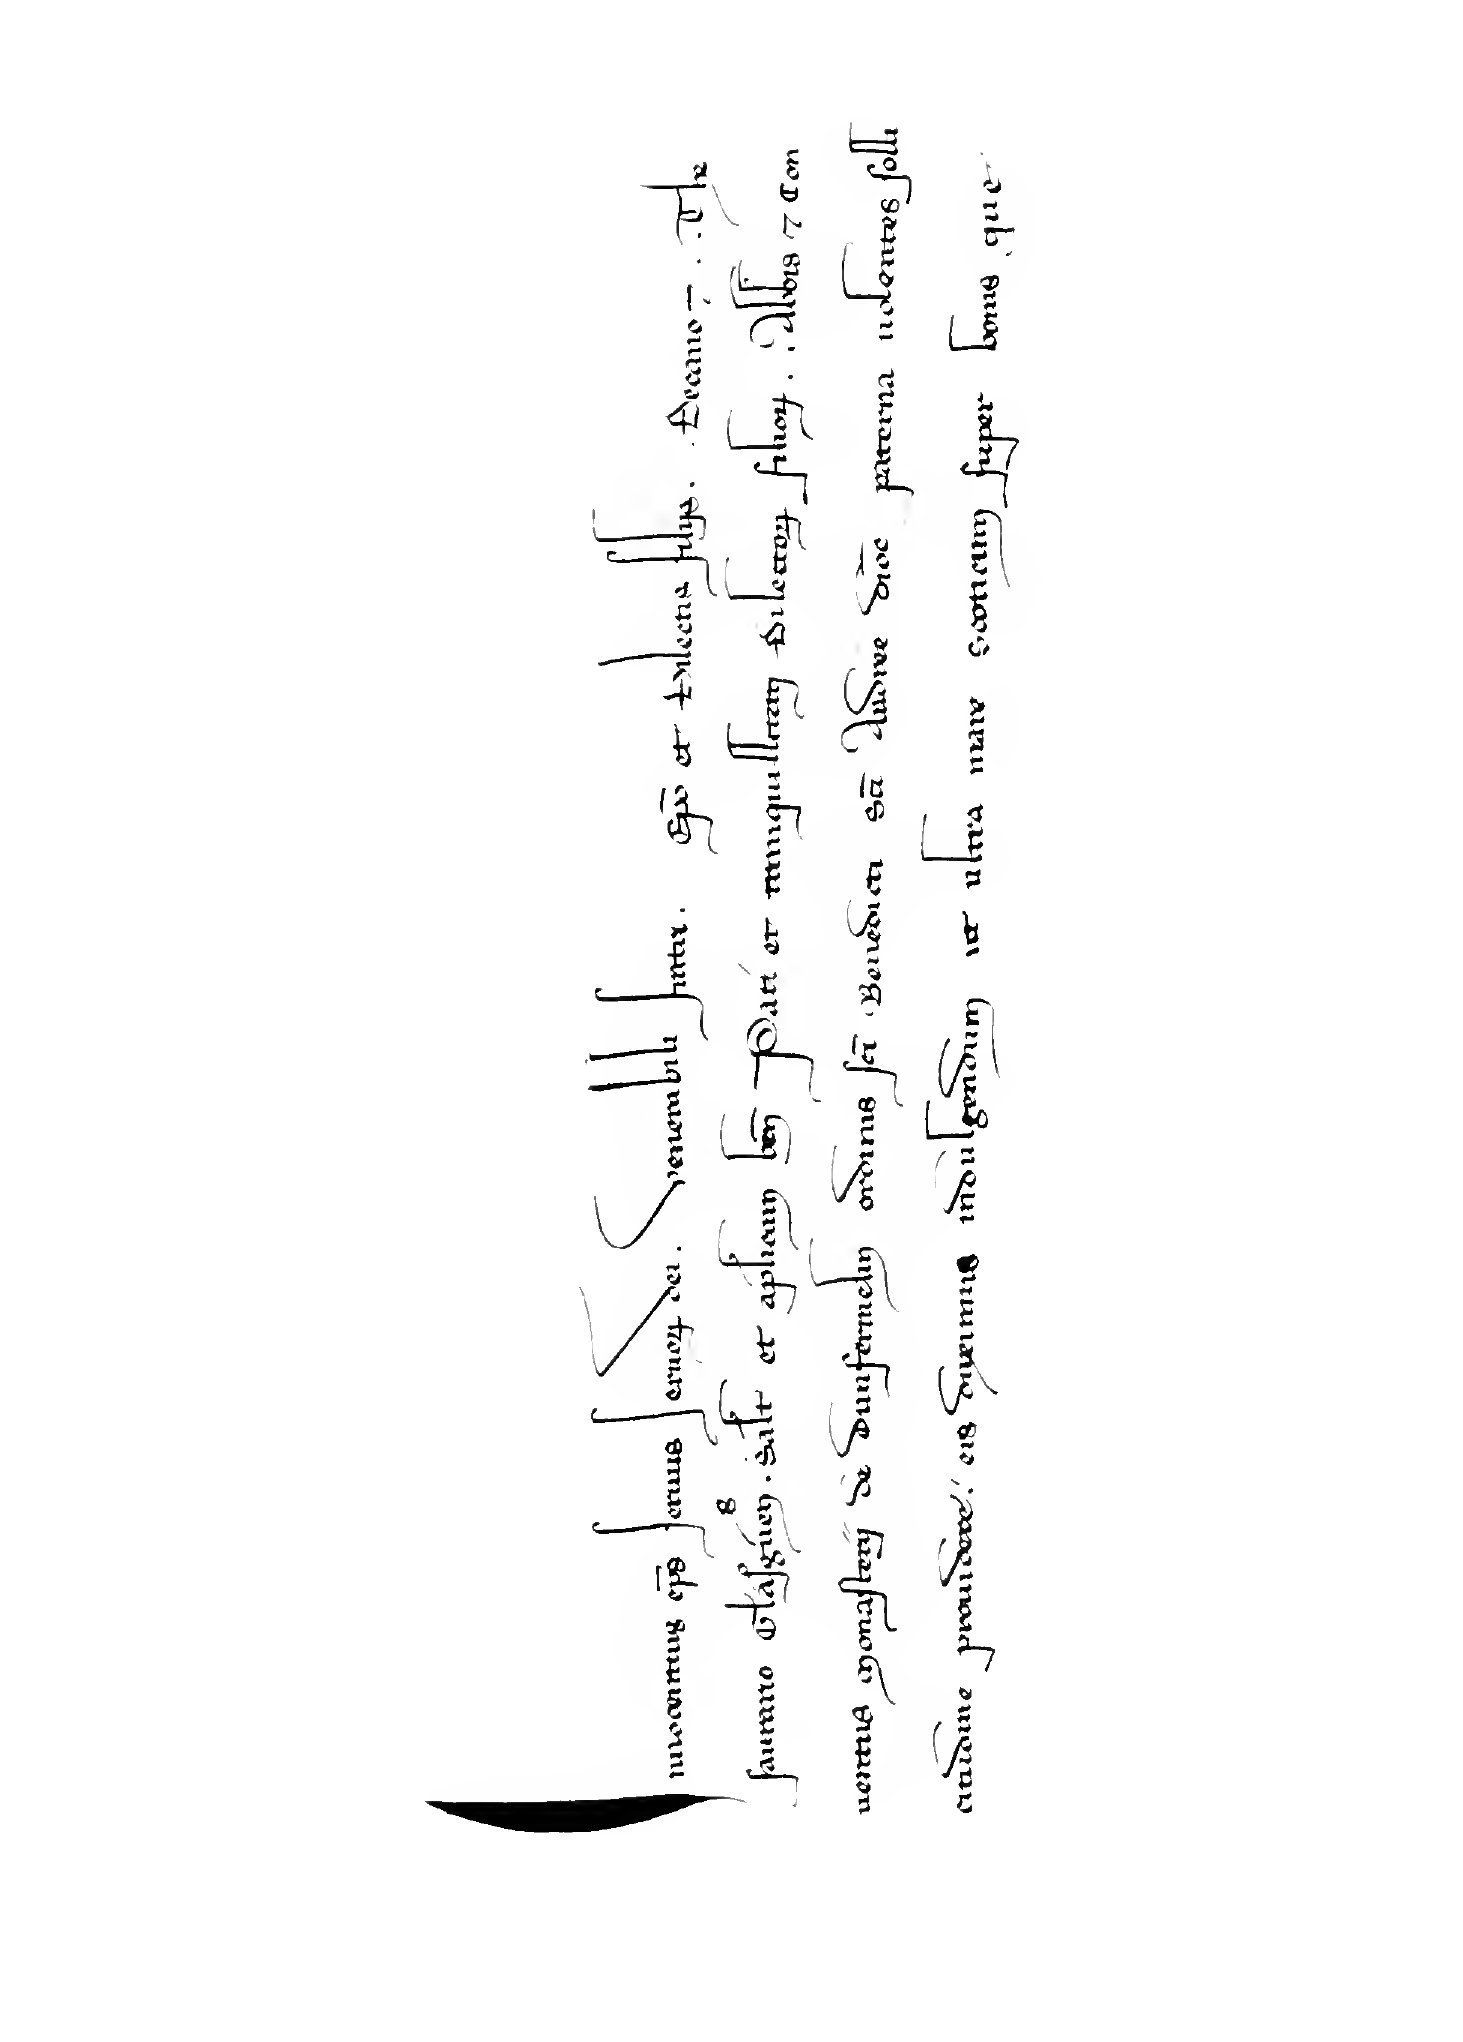 Innocentius ep̄s seruus seruoꝝ dei. Venerabili fratri. Ep̄o et dilectis filijs. Decano ⁊. The
saurario Glasguen̄. Sal̄t et ap̄licam ben̄ Pati et tranquillitati dilectoꝝ filioꝝ. Abb̄is ⁊ Con
uentus Monasterij de Dunfermelin ordinis sc̄i Benedicti sc̄i Andree dioc̄ paterna uolentes solli
citudine prouidere. eis duximus indulgendum ut ultra mare scoticum super bonis que